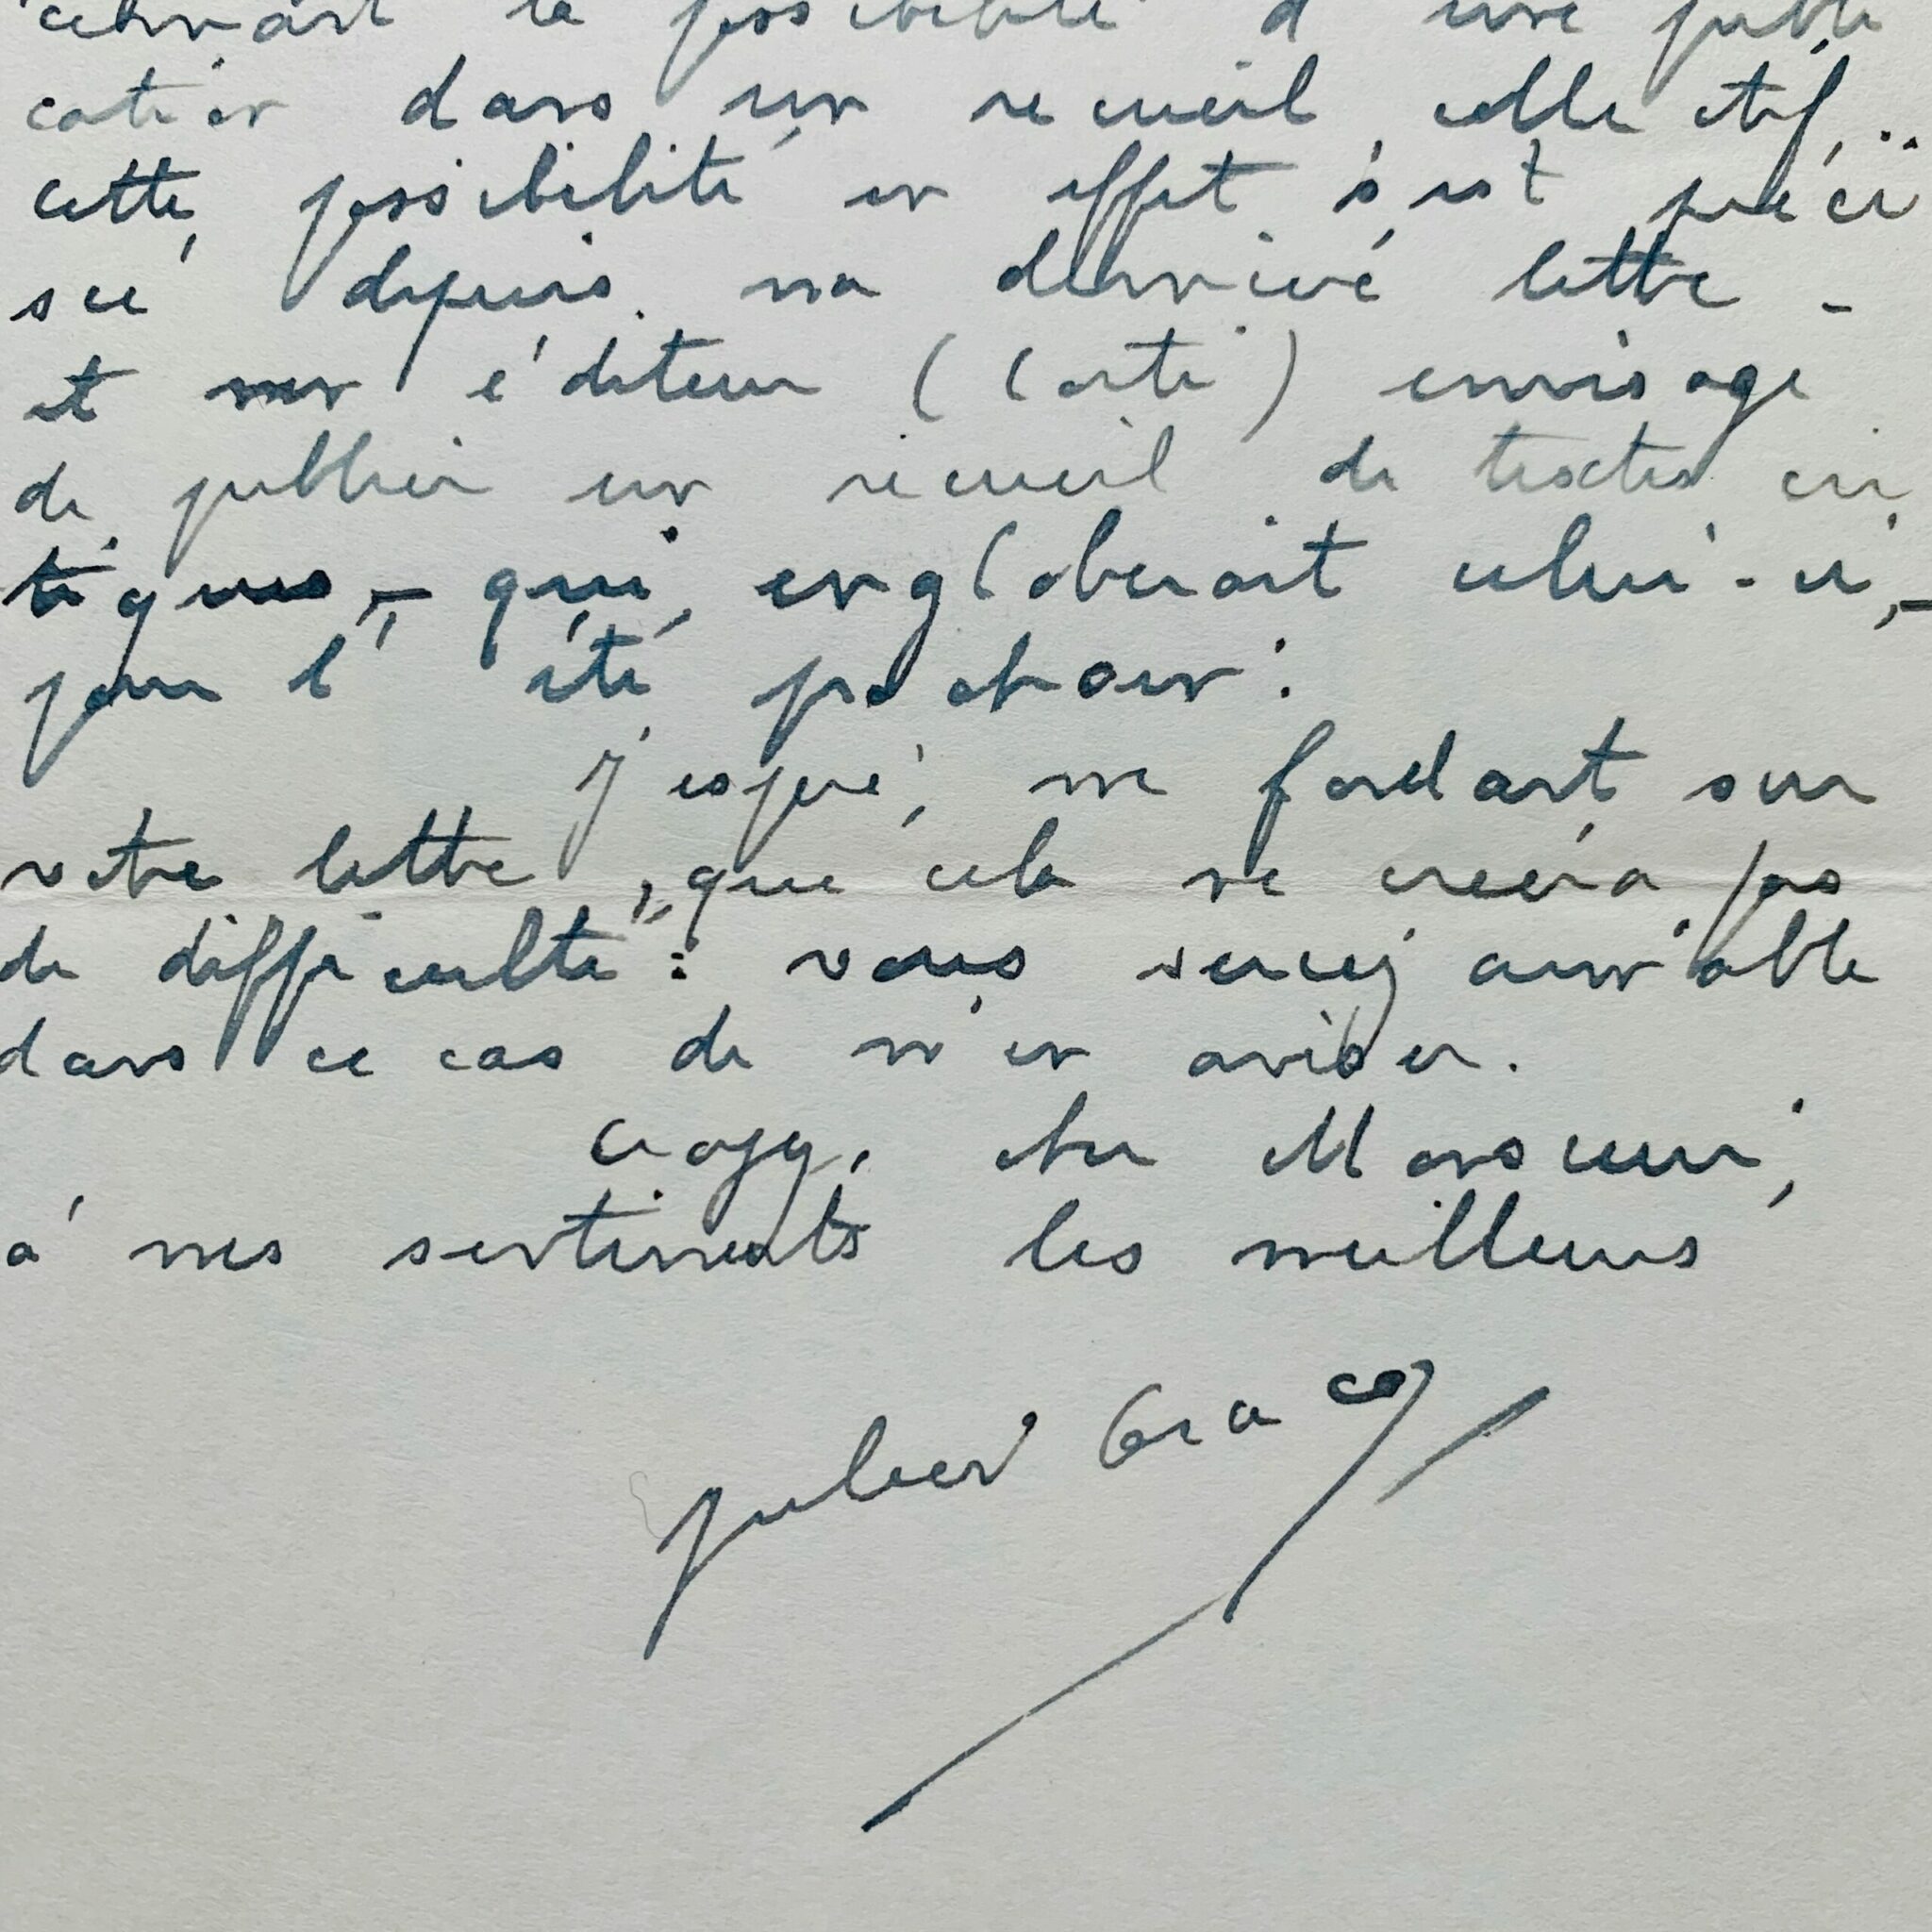 la possibilité d'une publi
cation dans un recueil collectif..
cette possibilité en effet s'est préci
sée depuis ma dernière lettre -
et mon éditeur (Corti) envisage
de publier un recueil de textes cri
tiques, - qui engloberait celui-ci, -
pour l'été prochain.
J'espère, me fondant sur
votre lettre, que cela ne créera pas
de difficulté : vous seriez aimable
dans ce cas de m'en aviser.
Croyez, cher Monsieur,
à mes sentiments les meilleurs
Julien Gracq